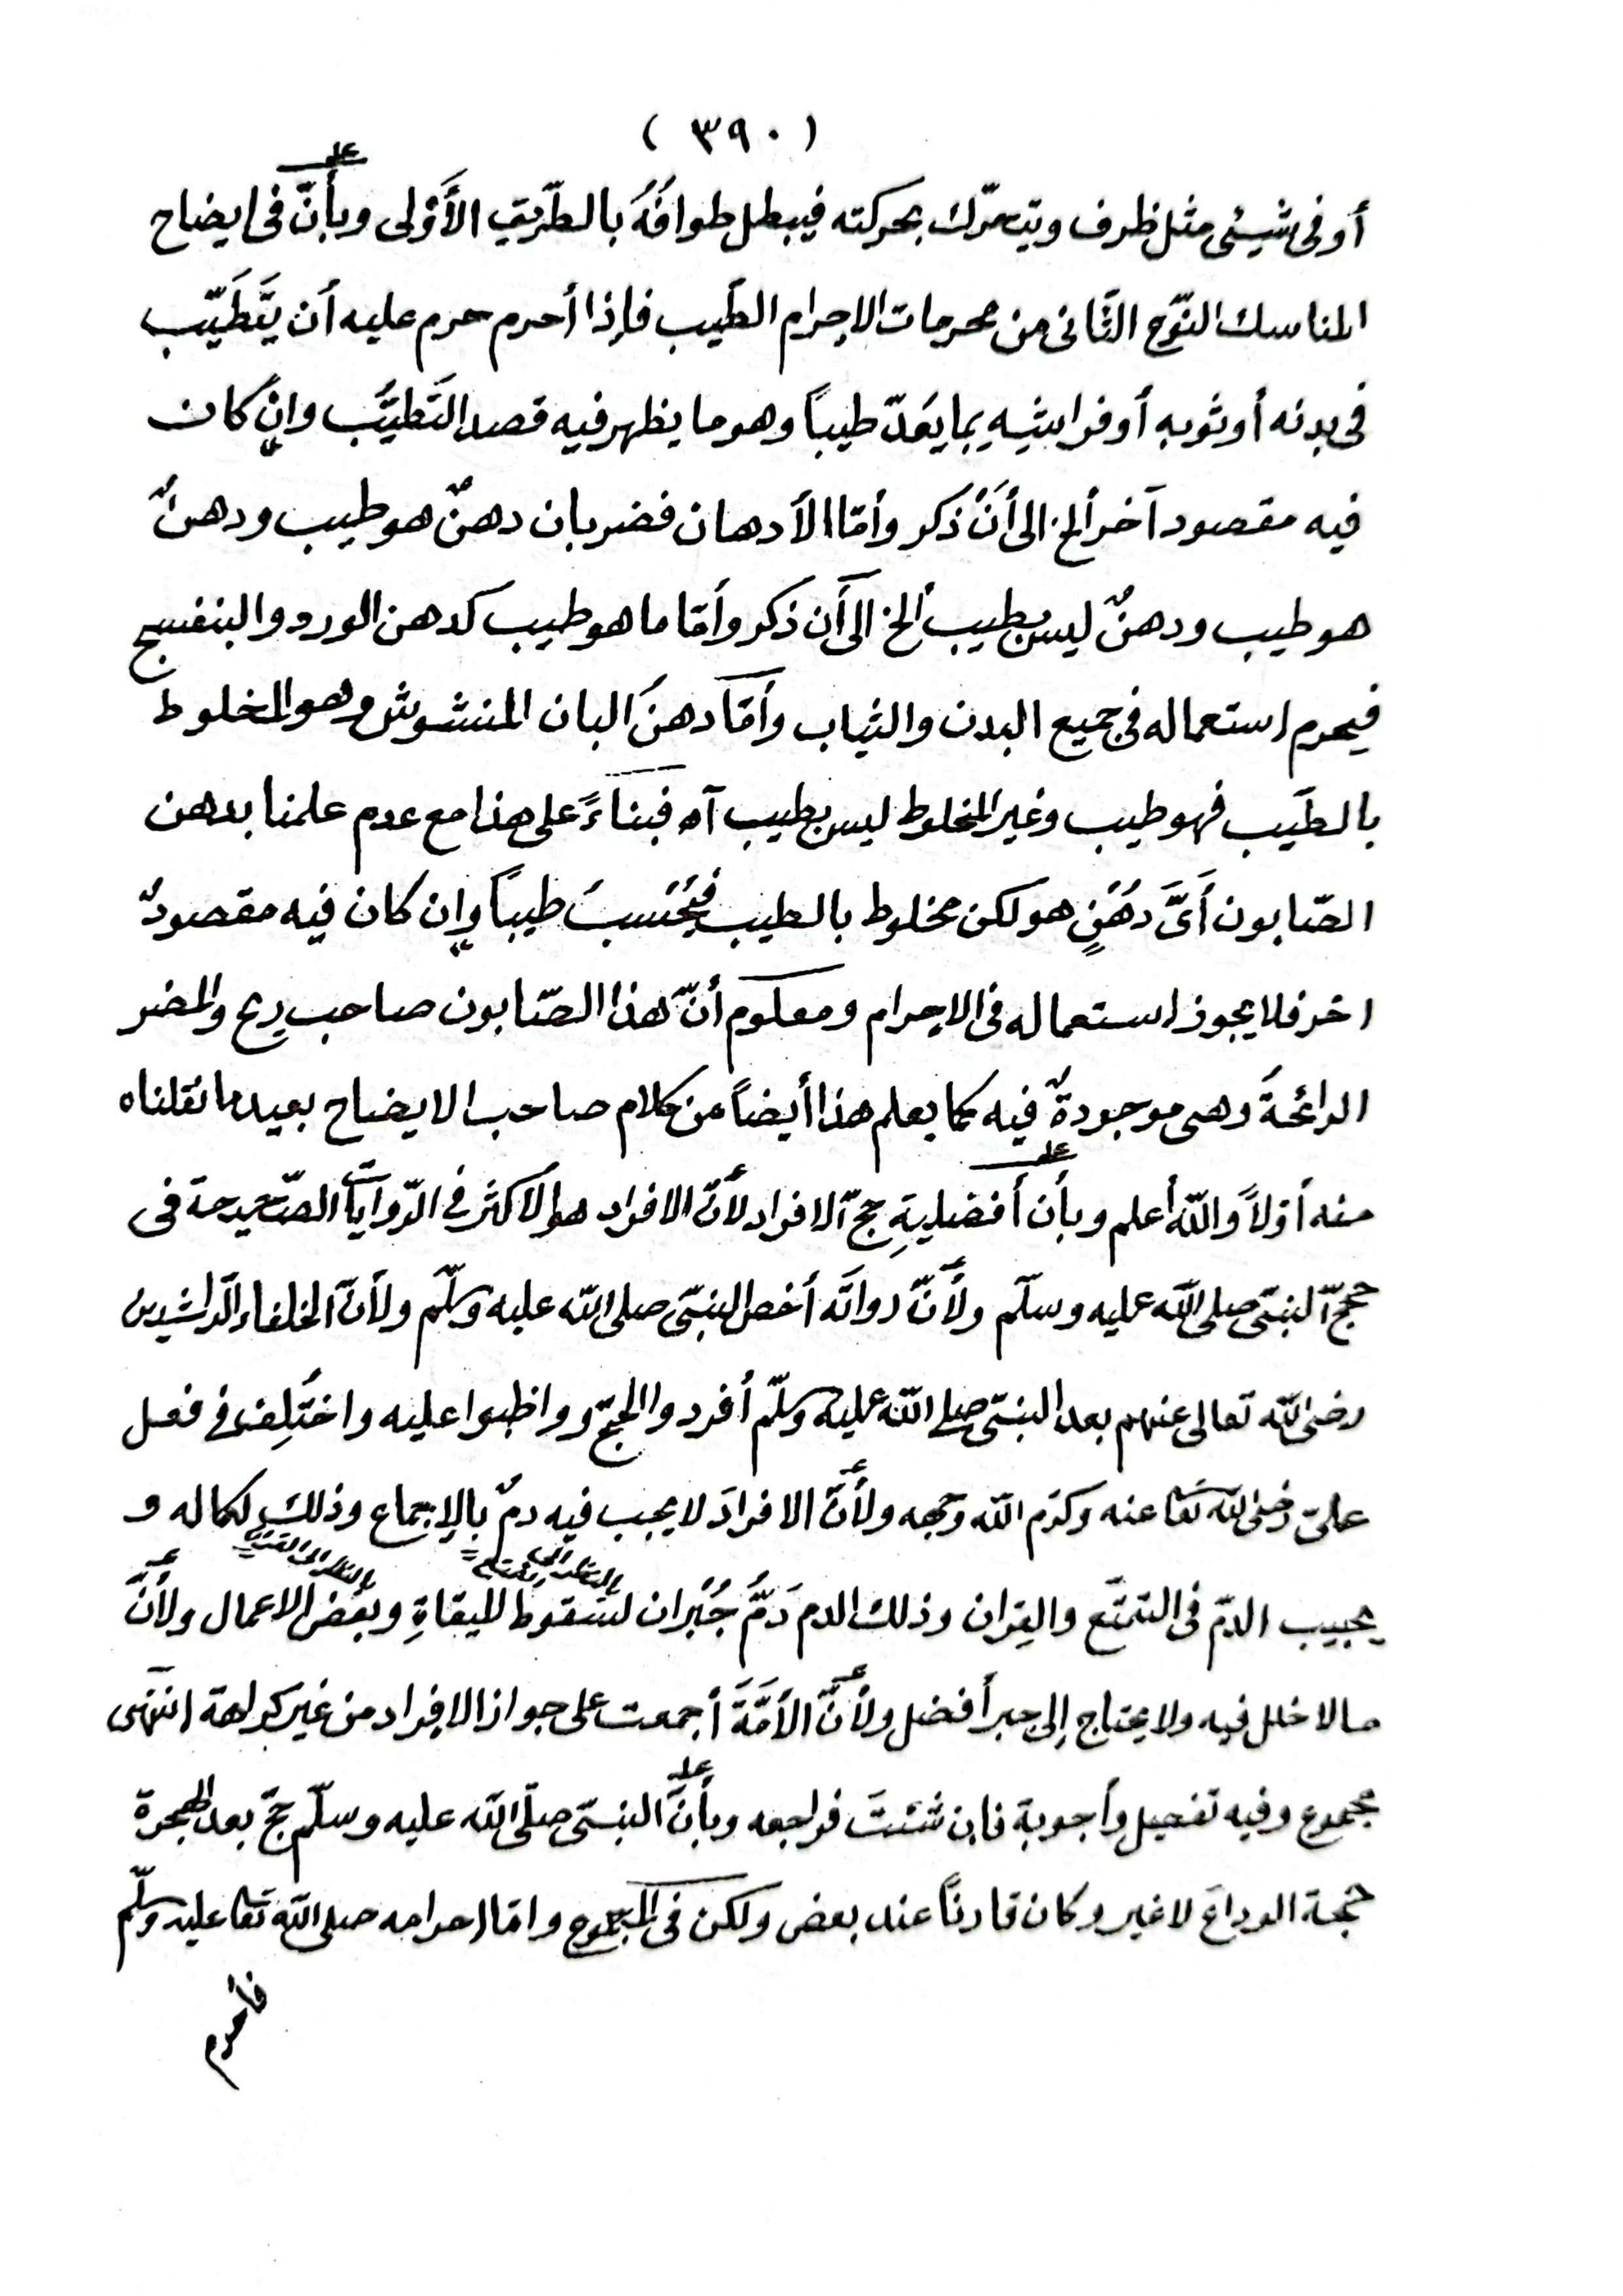 ( ٣٩٠ )
أو فى شيئى مثل ظرف ويتحرّك بحركته فيبطل طوافُهُ بالطّريق الأَوْلى وبأنّ فى ايضاح
المناسك النّوع الثّانى من محرمات الاحرام الطّيب فإذا أحرم حرم عليه أن يَّتَطَيّب
فى بدنه أو ثوبه أو فراشِه بما يُعدّ طيباً وهو ما يظهر فيه قصد التَّطيُّب وإن كان
فيه مقصود آخر ألخ الى أَنْ ذكر وأمّا الأدهان فضربان دهنٌ هو طيب ودهنٌ
هو طيب ودهنٌ ليس بطيب ألخ الى أَن ذكر وأمّا ما هو طيب كدهن الورد والبنفسج
فيحرم استعماله فى جميع البدن والثياب وأمّا دهن البان المنشوش وهو المخلوط
بالطّيب فهو طيب وغير المخلوط ليس بطيب آه فبناءً على هذا مع عدم علمنا بدهن
الصّابون أَىَّ دُهْنٍ هو لكن مخلوط بالطيب فيُحْسبُ طيباً وإن كان فيه مقصودٌ
اخر فلا يجوز استعماله فى الاحرام ومعلوم أنّ هذا الصّابون صاحب ريح والمضر
الرائحةُ وهى موجودةٌ فيه كما يعلم هذا أيضاً من كلام صاحب الايضاح بعيد ما نقلناه
منه أوّلاً واللّه أعلم وبأن أفضليةِ حجّ الافراد لأنّ الافراد هو الأكثر فى الرّوايات الصّحيحة فى
حجّ النبىّ صلى اللّه عليه وسلّم ولأنّ رواتَه أخص النبىّ صلى اللّه عليه وسلّم ولأنّ الخلفاء الرّاشدين
رضى اللّه تعالى عنهم بعد النبىّ صلى اللّه عليه وسلّم أفردوا الحجّ وواظبوا عليه واختُلِف فى فعل
علىّ رضى اللّه تعا عنه وكرّم اللّه وجهه ولأنّ الافرادَ لا يجب فيه دمٌ بالإجماع وذلك لكماله و
بالنظر الى التمتع = بالنظر الى القران =
يجيب الدّم فى التمتّع والقِران وذلك الدم دَمُ جُبْران لسقوط الميقاتِ وبعض الاعمال ولأنّ
ما لا خلل فيه ولا يحتاج إلى جبر أفضل ولأنّ الأمّةَ أجمعت على جواز الافراد من غير كراهة انتهى
مجموع وفيه تفصيل وأجوبة فإن شئتَ فراجعه وبأنّ النبىّ صلّى اللّه عليه وسلّم حجّ بعد الهجرة
حجة الوداع لا غير وكان قارناً عند بعض ولكن فى المجموع وامّا احرامه صلى اللّه تعا عليه وسلّم
فأحرم